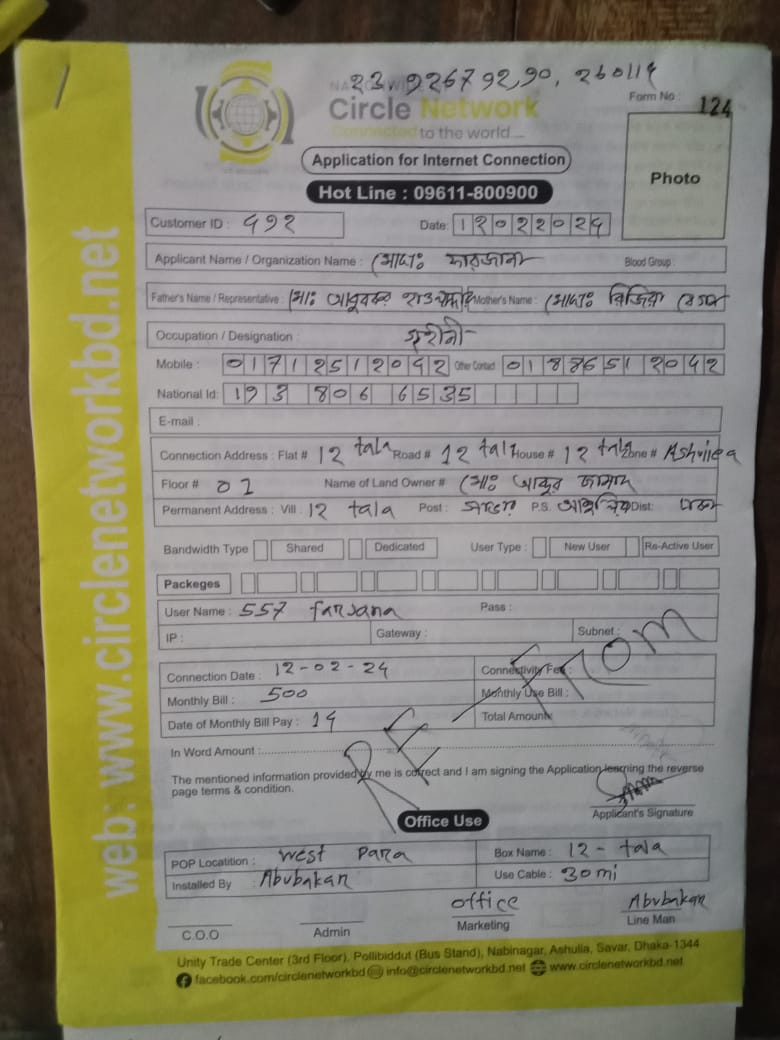 23.926792,90.260114
NATIONWIDE
Circle Network
Connected to the world....
Form No : 124
Application for Internet Connection
Photo
Hot Line : 09611-800900
Customer ID : 492 Date: 12022024
Applicant Name / Organization Name : মোছাঃ ফারজানা Blood Group :
Father's Name / Representative : মোঃ আবুবকর Mother's Name : মোছাঃ রিজিয়া বেগম
Occupation / Designation : গৃহীনী
Mobile : 01712512042 Other Contact 01886512042
National Id: 193 806 6535
E-mail :
Connection Address : Flat # 12 tala Road # 12 tala House # 12 tala Zone # Ashuliea
Floor # 01 Name of Land Owner # মোঃ
Permanent Address : Vill : 12 tala Post : P.S. Dist: ঢাকা
Bandwidth Type Shared Dedicated User Type : New User Re-Active User
Packeges
User Name : 557 farjana Pass :
IP : Gateway : Subnet :
Connection Date : 12-02-24 Connectivity Fee :
Monthly Bill : 500 Monthly Use Bill :
Date of Monthly Bill Pay : 14 Total Amount:
RE-FROM
In Word Amount :
The mentioned information provided by me is correct and I am signing the Application learning the reverse
page terms & condition.
Applicant's Signature
Office Use
POP Locatition : West Para Box Name : 12-tala
Installed By : Abubakar Use Cable : 30mi
office Abubakar
C.O.O Admin Marketing Line Man
Unity Trade Center (3rd Floor), Pollibiddut (Bus Stand), Nabinagar, Ashulia, Savar, Dhaka-1344
facebook.com/circlenetworkbd info@circlenetworkbd.net www.circlenetworkbd.net
web: www.circlenetworkbd.net